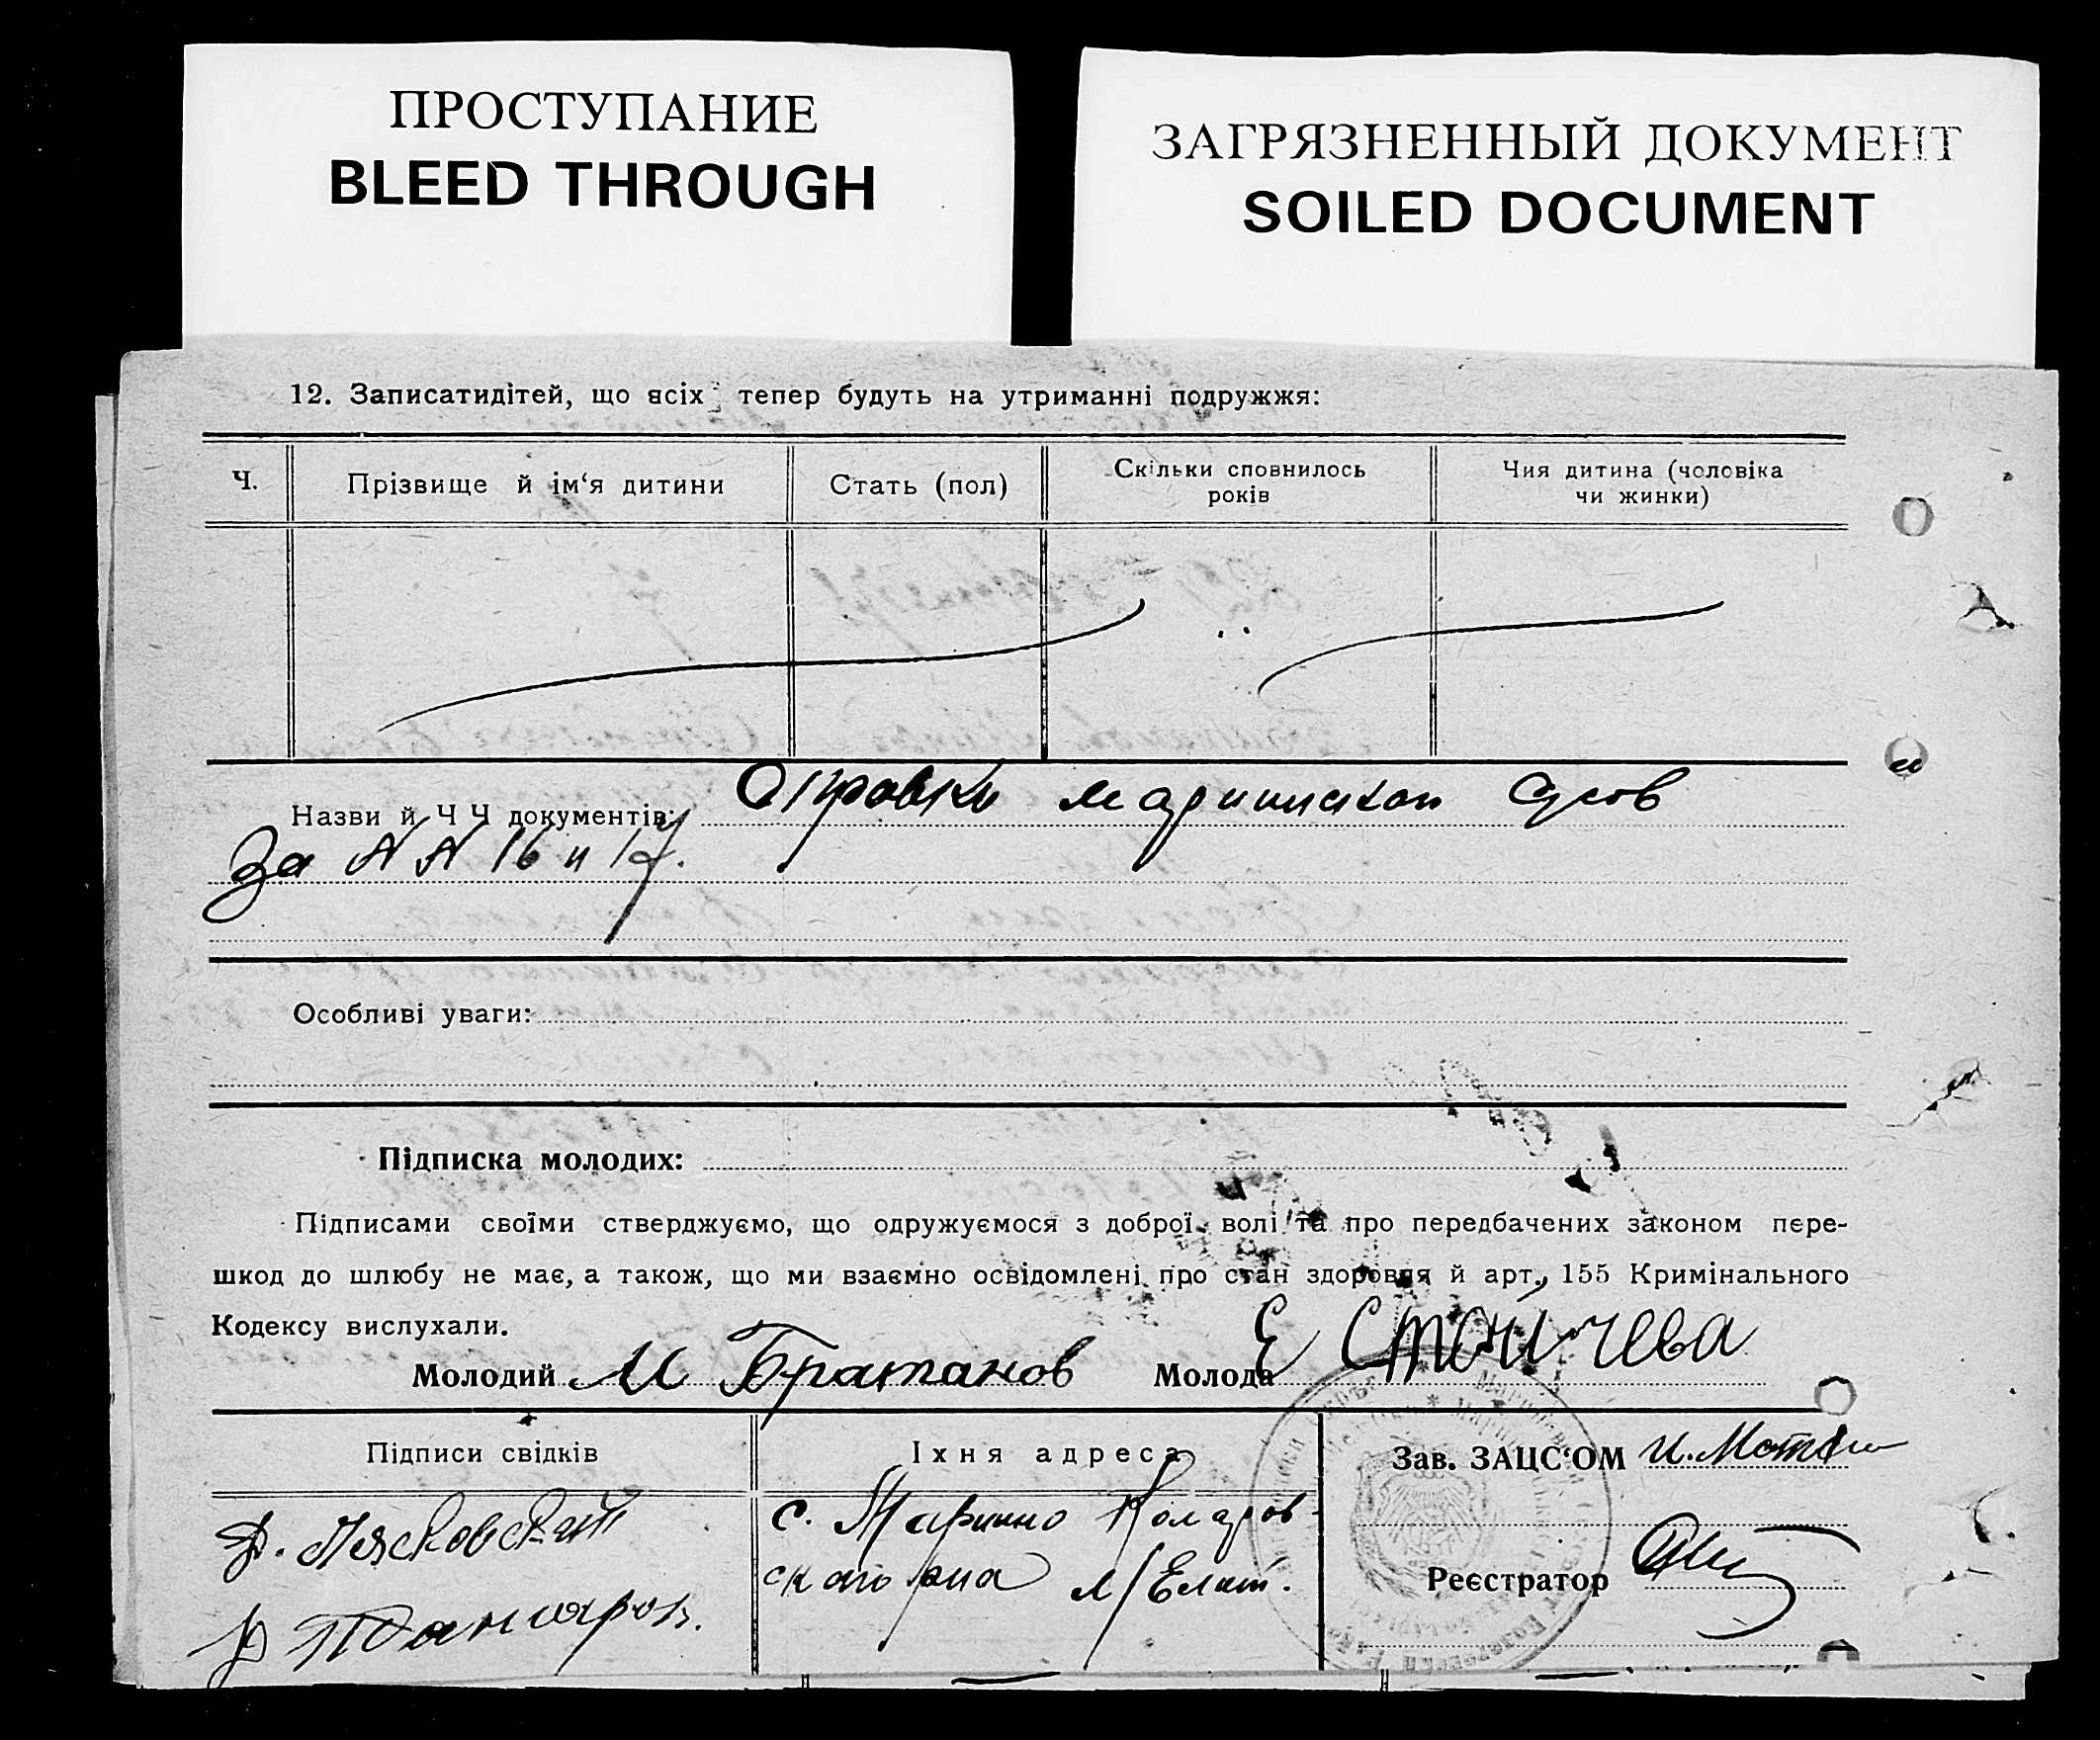 ПРОСТУПАНИЕ
BLEED THROUGH
ЗАГРЯЗНЕННЫЙ ДОКУМЕНТ
SOILED DOCUMENT
12. Записатидітей, що всіх тепер будуть на утриманні подружжя:
Ч.
Прізвище й ім‘я дитини
Стать (пол)
Скільки сповнилось
років
Чия дитина (чоловіка
чи жинки)
Назви й Ч Ч документів:
За N N 16 и 17.
Особливі уваги:
Підписка молодих:
Підписами своїми стверджуємо, що одружуємося з доброї волі та про передбачених законом пере-
шкод до шлюбу не має, а також, що ми взаємно освідомлені про стан здоровря й арт., 155 Кримінального
Кодексу вислухали.
Молодий И Братанов Молода Е Стойчева
Підписи свідків
Їхня адреса
Зав. ЗАЦС‘ОМ
с. Марино Коларов-
ского р-на М/Елит.
Реєстратор